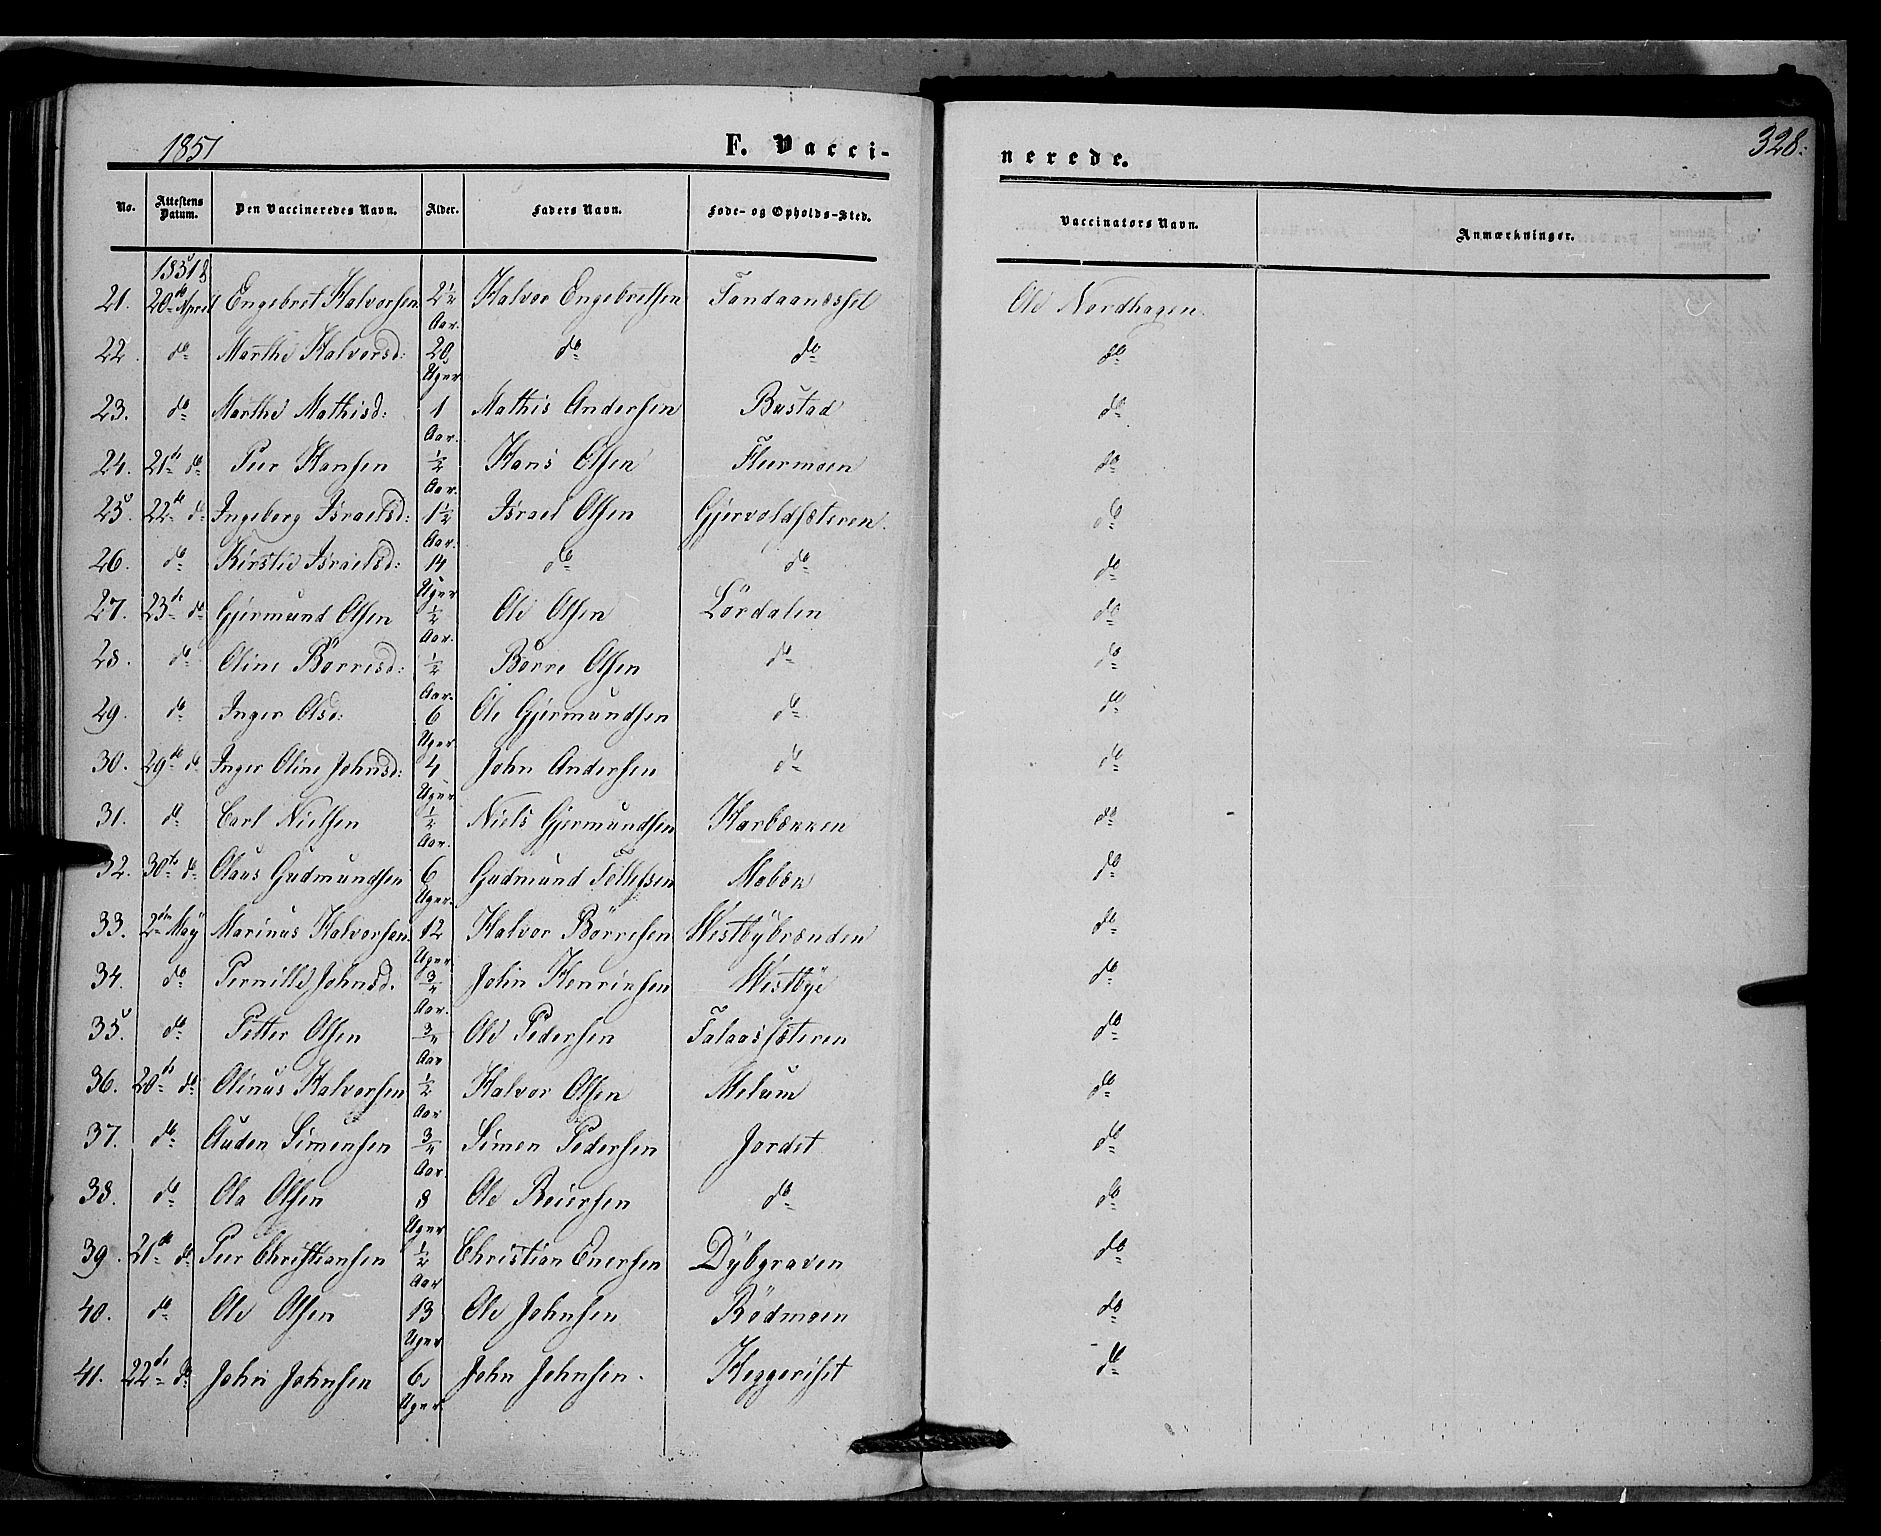 1851 F. Vacci- nerede. 328.
No. Attestens Datum. Den Vaccineredes Navn. Alder. Faders Navn. Føde- og Opholds-Sted. Vaccinators Navn. Anmærkninger.
1851
21. 20de April Engebret Halvorsen 2½ Aar. Halvor Engebretsen Tandaanæsset Ole Nordhagen.
22. do Marthe Halvorsd: 20 Uger do do do
23. do Marthe Mathisd: 1 Aar. Mathis Andersen Bustad do
24. 21de do Peer Hansen ½ Aar. Hans Olsen Flermoen do
25. 22de do Ingeborg Israelsd: 1½ Aar. Israel Olsen Gjervoldsæteren do
26. do Kirstie Israelsd: 14 Uger do do do
27. 23de do Gjermund Olsen ½ Aar. Ole Olsen Lördalen do
28. do Oline Börresd: ½ Aar. Börre Olsen do do
29. do Inger Olsd: 6 Uger Ole Gjermundsen do do
30. 29de do Inger Oline Johnsd: 4 Uger John Andersen do do
31. do Carl Nielsen ½ Aar. Niels Gjermundsen Harbækken do
32. 30te do Olaus Gudmundsen 6 Uger. Gudmund Tollefsen Mobæk do
33. 2den May Marinus Halvorsen 12 Uger Halvor Börresen Westbybrænden do
34. do Pernille Johnsd. ¾ Aar. John Henriksen Westbye do
35. do Petter Olsen ¾ Aar Ole Pedersen Falaassæteren do
36. 20de do Olinus Halvorsen ½ Aar Halvor Olsen Melum do
37. do Auden Simensen ¾ Aar. Simen Pedersen Jordet do
38. do Ola Olsen 8 Uger Ole Reiersen do do
39. 21de do Peer Christiansen ½ Aar Christian Enersen Dybgraven do
40. do Ole Olsen 13 Uger Ole Johnsen Rödmoen do
41. 22de do John Johnsen 6 Uger John Johnsen. Heggeriset do